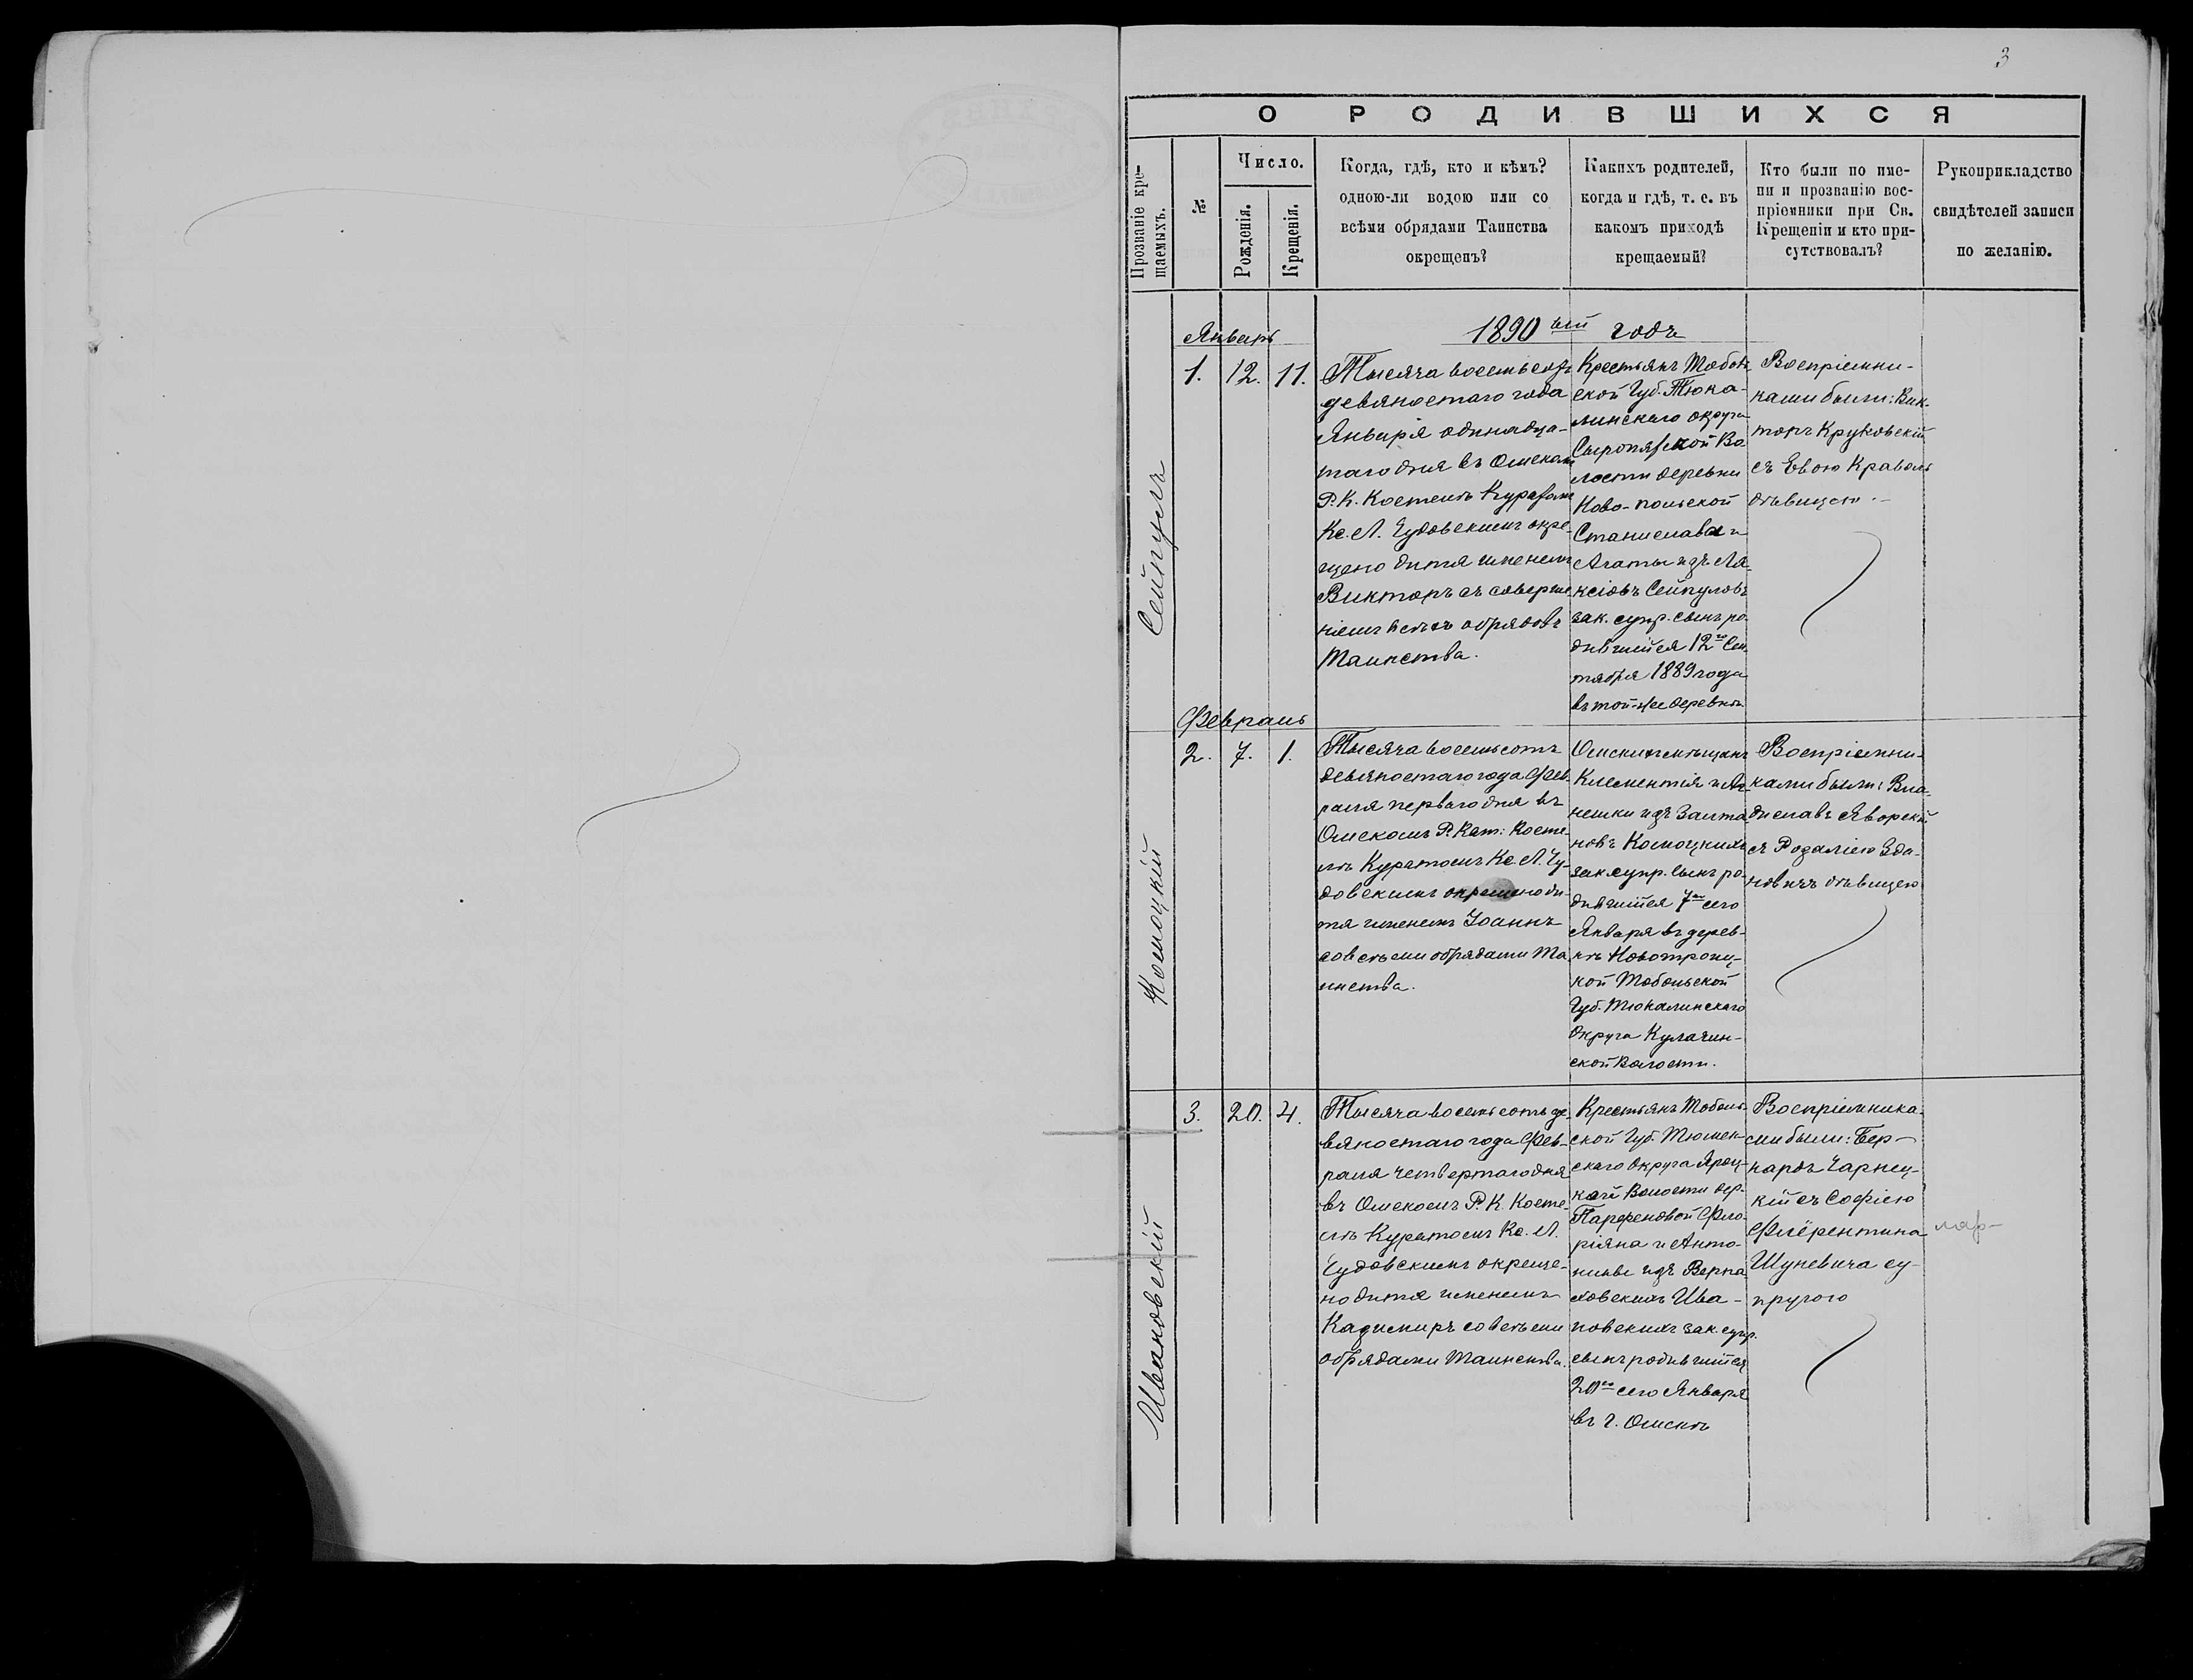 3
О РОДИВШИХСЯ
Прозваніе кре-
щаемыхъ.
№
Число.
Рожденія.
Крещенія.
Когда, гдѣ, кто и кѣмъ?
одною-ли водою или со
всѣми обрядами Таинства
окрещенъ?
Какихъ родителей,
когда и гдѣ, т. е. въ
какомъ приходѣ
крещаемый?
Кто были по име-
ни и прозванію вос-
пріемники при Св.
Крещеніи и кто при-
сутствовалъ?
Рукоприкладство
свидѣтелей записи
по желанію.
1890 ый годъ
Январь
Сейпулъ
1. 12. 11.
Тысяча восемьсотъ
девяностаго года
Января одинадца-
таго дня въ Омскомъ
Р. К. Костелѣ Куратом
Кс. Л. Чудовскимъ окре-
щено дитя именемъ
Викторъ съ соверше-
ніемъ всѣхъ обрядовъ
Таинства.
Крестьянъ Тоболь
ской Губ. Тюка-
линскаго округа
Сыропятской Во-
лости деревни
Ново-польской
Станислава и
Агаты изъ Ла-
ксіовъ Сейпуловъ
зак. супр. сынъ ро-
дившійся 12го Сен
тября 1889 года
въ той-же деревнѣ
Воспріемни-
ками были: Вик-
торъ Круковскій
съ Евою Краволь
дѣвицею.-
Февраль
Комоцкій
2. 7. 1.
Тысяча восемьсотъ
девяностаго года Фев-
раля перваго дня въ
Омскомъ Р. Кат: Косте-
лѣ Куратомъ Кс. Л. Чу-
довскимъ окрещено ди-
тя именемъ Іоаннъ
со всѣми обрядами Та
инства.
Омскихъ мѣщанъ
Клементія и Аг
нешки изъ Залта
новъ Комоцкихъ
зак. супр. сынъ ро-
дившійся 7го сего
Января въ дерев-
нѣ Новотроиц-
кой Тобольской
Губ. Тюкалинскаго
Округа Кулачин-
ской Волости.
Воспріемни-
ками были: Вла-
диславъ Яворскій
съ Розаліею Зда-
новичъ дѣвицею
Ивановскій
3. 20. 4.
Тысяча восемьсотъ де-
вяностаго года Фев-
раля четвертаго дня
въ Омскомъ Р. К. Косте-
лѣ Куратомъ Кс. Л.
Чудовскимъ окреще-
но дитя именемъ
Казимиръ со всѣми
обрядами Таинства.
Крестьянъ Тоболь-
ской Губ. Тюмен-
скаго Округа Яроц-
кой Волости дер.
Парфеновой Фло-
ріяна и Анто-
нины изъ Верпа
ховскихъ Ива-
новскихъ зак. супр.
сынъ родившійся
20го сего Января
въ г. Омскѣ
Воспріемника-
ми были: Бер-
нардъ Чарнец-
кій съ Софіею
Флёрентина
Шуневича су-
пругою